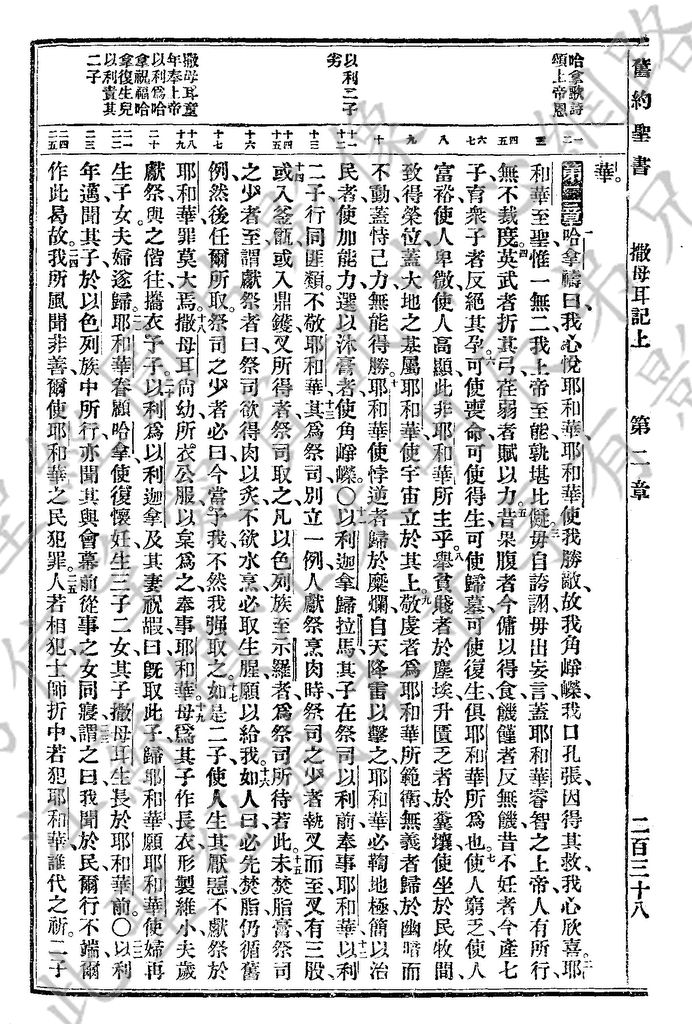 舊約聖書 撒母耳記上 第二章 二百三十八
哈拿歌詩
頌上帝恩
以利二子
劣
撒母耳童
年奉上帝
以利爲哈
拿祝福哈
拿復生兒
以利責其
二子
華。
第二章 一哈拿禱曰我心悅耶和華耶和華使我勝敵故我角崢嶸我口孔張因得其救我心欣喜二耶
和華至聖惟一無二我上帝至能孰堪比儗三毋自誇詡毋出妄言蓋耶和華睿智之上帝人有所行
無不裁度四英武者折其弓荏弱者賦以力五昔果腹者今傭以得食饑饉者反無餓昔不妊者今產七
子育衆子者反絕其孕六可使喪命可使得生可使歸墓可使復生俱耶和華所爲也七使人窮乏使人
富裕使人卑微使人高顯此非耶和華所主乎八舉貧賤者於塵埃升匱乏者於糞壤使坐於民牧間
致得榮位蓋大地之基屬耶和華使宇宙立於其上九敬虔者爲耶和華所範衛無義者歸於幽暗而
不動蓋恃己力無能得勝十耶和華使悖逆者歸於糜爛自天降雷以擊之耶和華必鞫地極簡以治
民者使加能力選以沐膏者使角崢嶸〇十一以利迦拿歸拉馬其子在祭司以利前奉事耶和華十二以利
二子行同匪類不敬耶和華十三其爲祭司別立一例人獻祭烹肉時祭司之少者執叉而至叉有三股
十四或入釜甑或入鼎鑊叉所得者祭司取之凡以色列族至示羅者爲祭司所待若此十五未焚脂膏祭司
之少者至謂獻祭者曰祭司欲得肉以炙不欲水烹必取生腥願以給我十六如人曰必先焚脂仍循舊
例然後任爾所取祭司之少者必曰今當予我不然我强取之十七如是二子使人生其厭惡不獻祭於
耶和華罪莫大焉十八撒母耳尚幼所衣公服以枲爲之奉事耶和華十九母爲其子作長衣形製維小夫歲
獻祭與之偕往攜衣予子二十以利爲以利迦拿及其妻祝嘏曰旣取此子歸耶和華願耶和華使婦再
生子女夫婦遂歸二一耶和華眷顧哈拿使復懷妊生三子二女其子撒母耳生長於耶和華前〇二二以利
年邁聞其子於以色列族中所行亦聞其與會幕前從事之女同寢二三謂之曰我聞於民爾行不端爾
作此曷故二四我所風聞非善爾使耶和華之民犯罪二五人若相犯士師折中若犯耶和華誰代之祈二子